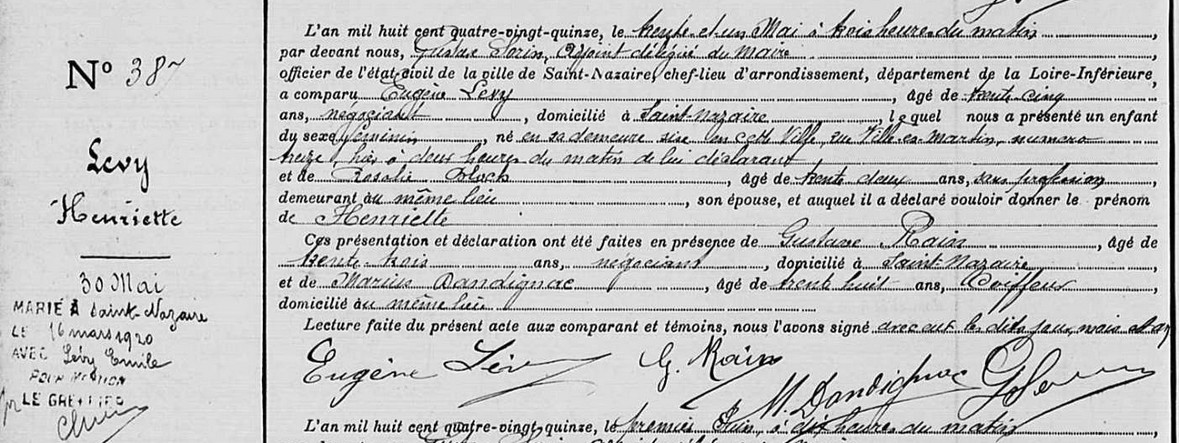 N° 387
Levy
Henriette
30 Mai
MARIÉ À Saint-Nazaire
LE 16 mars 1920
AVEC Lévy Emile
POUR MENTION
LE GREFFIER
L'an mil huit cent quatre-vingt-quinze, le trente et un Mai à trois heures du matin
par devant nous, Gustave Sorin, Adjoint délégué du Maire
officier de l'état-civil de la ville de Saint-Nazaire, chef-lieu d'arrondissement, département de la Loire-Inférieure,
a comparu Eugène Levy, âgé de trente cinq
ans, négociant, domicilié à Saint-Nazaire, lequel nous a présenté un enfant
du sexe féminin, né en sa demeure sise en cette Ville, rue Ville-es-Martin, numéro
treize, hier à deux heures du matin de lui déclarant,
et de Rosalie Bloch, âgé de trente deux ans, sans profession
demeurant au même lieu, son épouse, et auquel il a déclaré vouloir donner le prénom
de Henriette
Ces présentation et déclaration ont été faites en présence de Gustave Rain, âgé de
trente trois ans, négociant, domicilié à Saint-Nazaire,
et de Marius Dandignac, âgé de trente huit ans, Coiffeur
domicilié au même lieu
Lecture faite du présent acte aux comparant et témoins, nous l'avons signé avec eux les dits jour, mois et an
Eugène Lévy G. Rain
M. Dandignac
L'an mil huit cent quatre-vingt-quinze, le premier Juin, à dix heures du matin